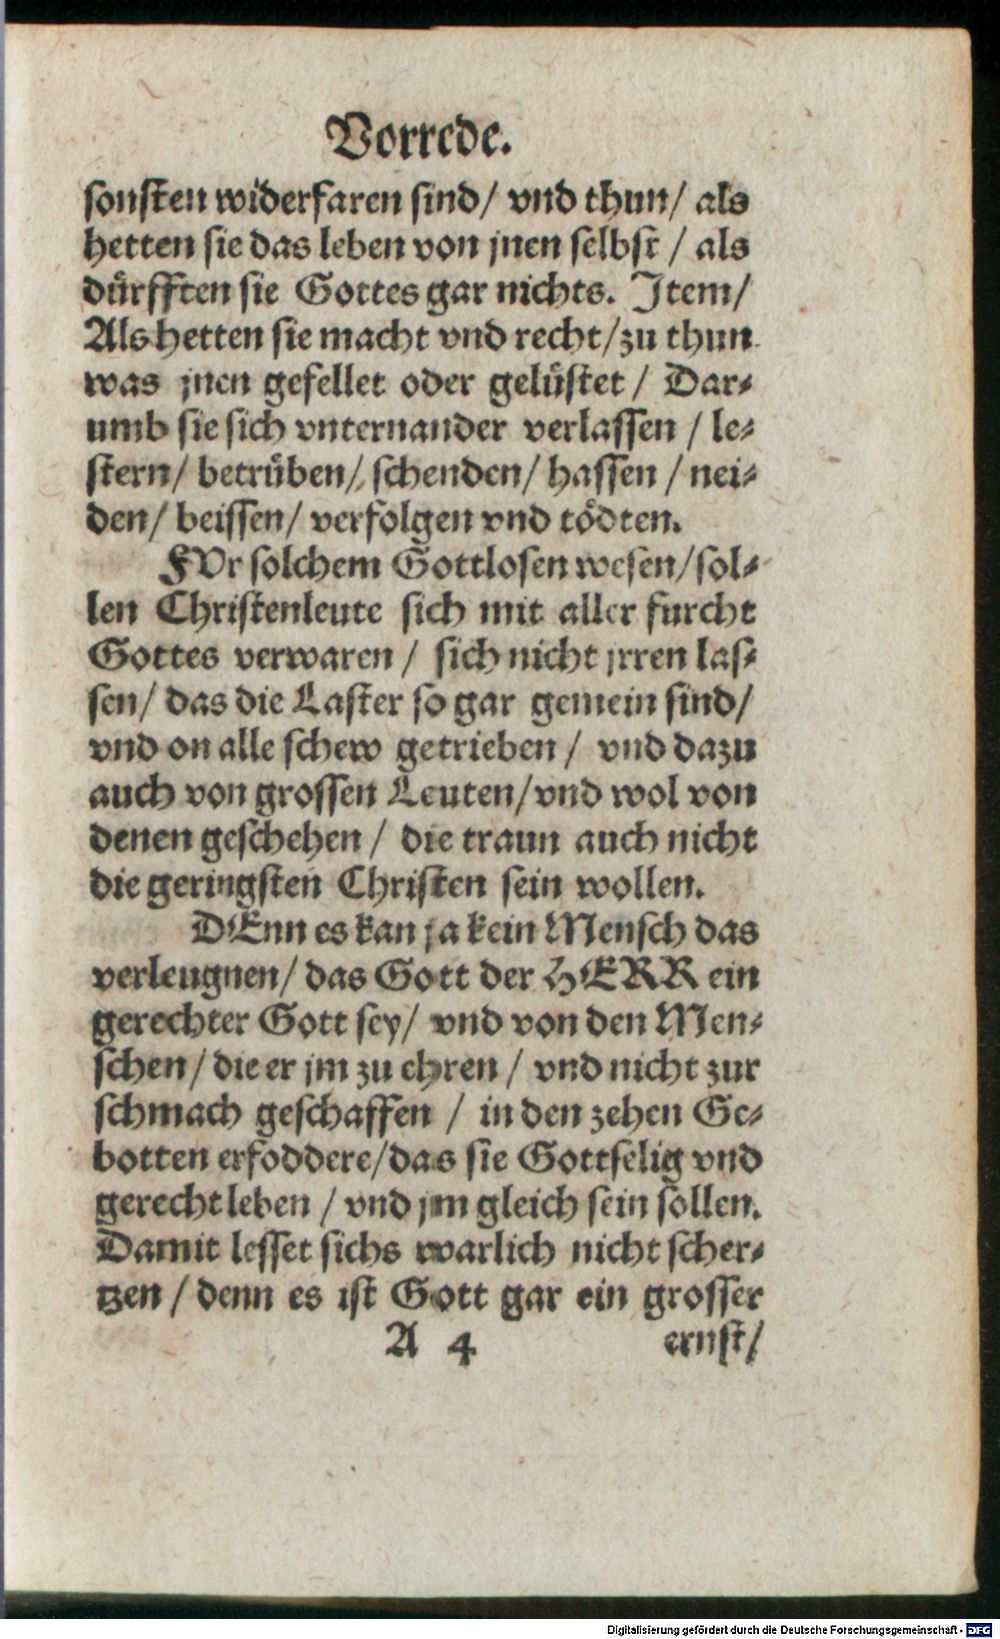 Vorrede.
sonsten widerfaren sind/ vnd thun/ als
hetten sie das leben von jnen selbst / als
dürfften sie Gottes gar nichts. Jtem/
Als hetten sie macht vnd recht/zu thun
was jnen gefellet oder gelüstet / Dar-
umb sie sich vnternander verlassen / le-
stern/ betrüben/ schenden/ hassen / nei-
den/ beissen/ verfolgen vnd tödten.
FVr solchem Gottlosen wesen/sol-
len Christenleute sich mit aller furcht
Gottes verwaren / sich nicht jrren las-
sen/ das die Laster so gar gemein sind/
vnd on alle schew getrieben / vnd dazu
auch von grossen Leuten/vnd wol von
denen geschehen / die traun auch nicht
die geringsten Christen sein wollen.
DEnn es kan ja kein Mensch das
verleugnen/ das Gott der HERR ein
gerechter Gott sey/ vnd von den Men-
schen/ die er jm zu ehren / vnd nicht zur
schmach geschaffen / in den zehen Ge-
botten erfoddere/das sie Gottselig vnd
gerecht leben / vnd jm gleich sein sollen.
Damit lesset sichs warlich nicht scher-
tzen / denn es ist Gott gar ein grosser
A 4 ernst/
Digitalisierung gefördert durch die Deutsche Forschungsgemeinschaft - DFG